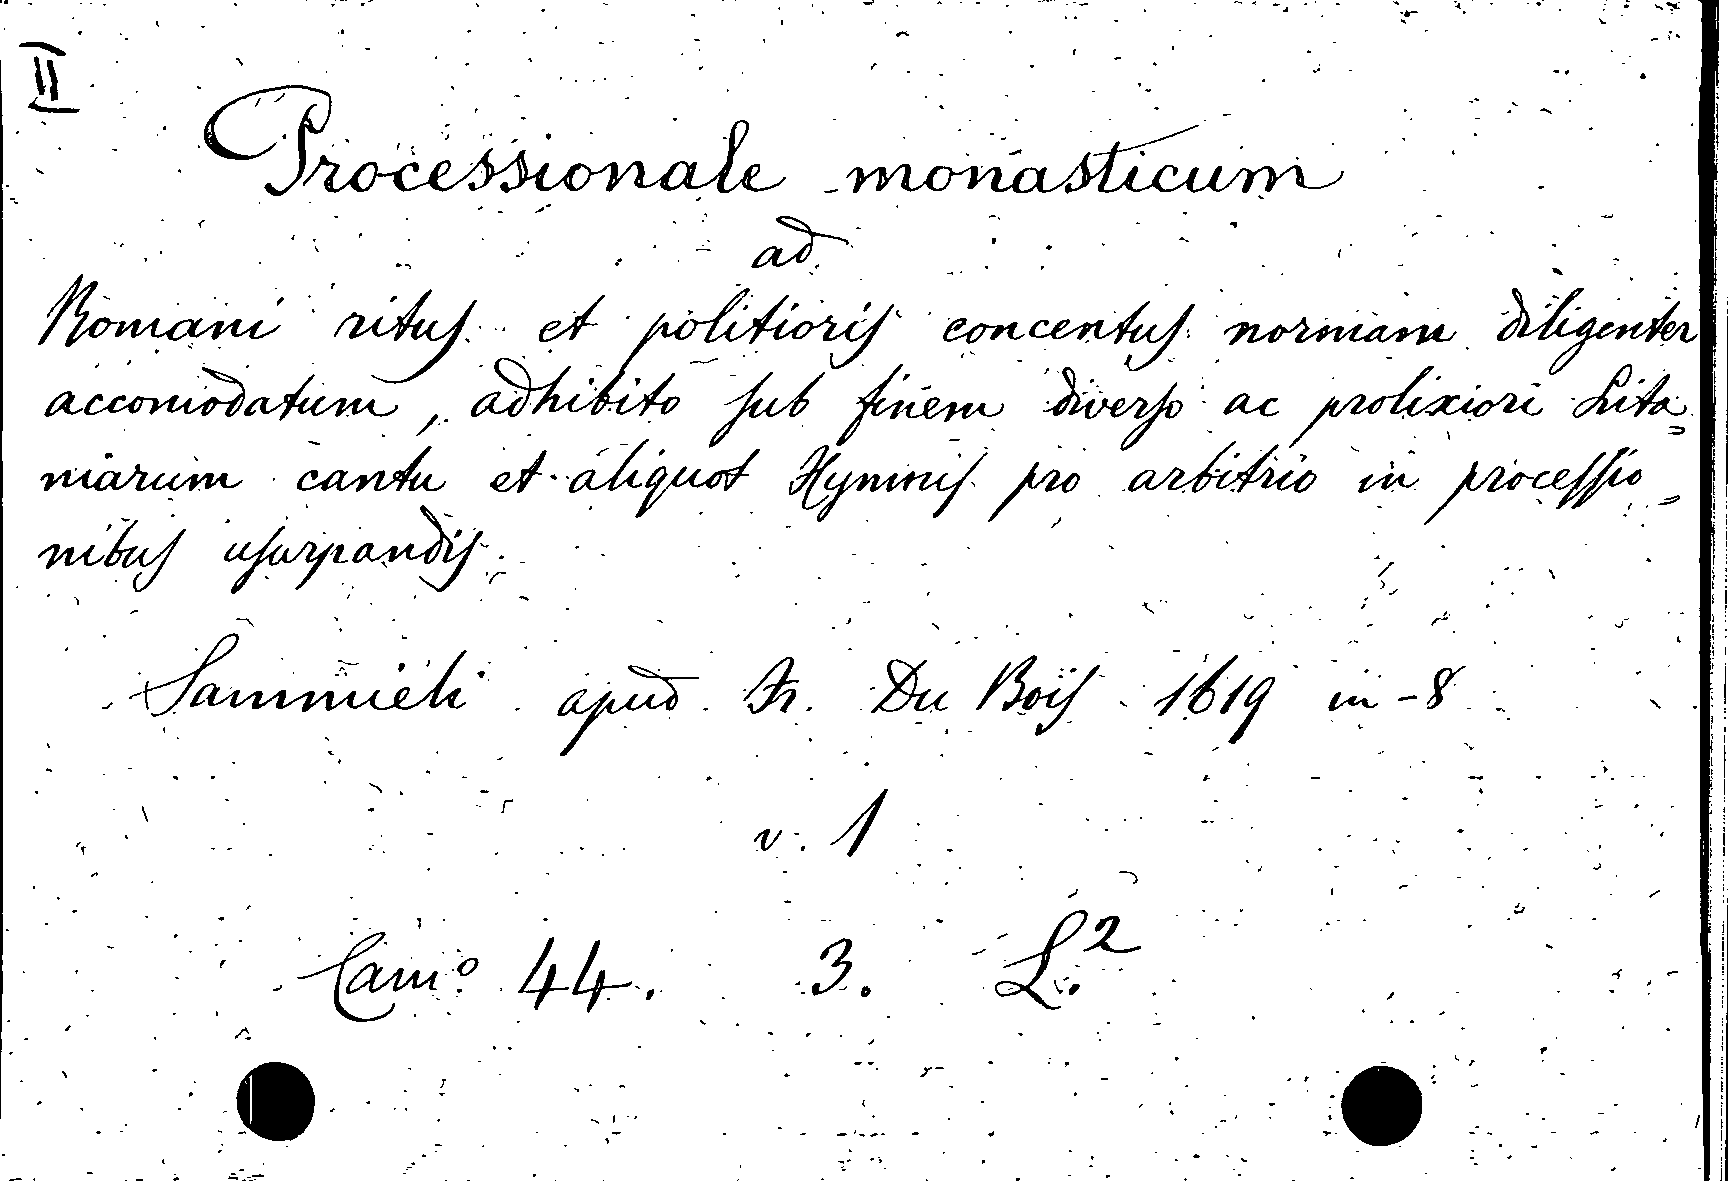 II
Processionale monasticum
ad
Romani ritus et politioris concentus normam diligenter
accomodatum, adhibito sub finem diverso ac prolixiori Lita=
niarum cantu et aliquot Hymnis pro arbitrio in processio=
nibus usurpandis.
Sammieli apud Fr. Du Bois 1619 in-8
v. 1
Cam° 44. 3. L.²